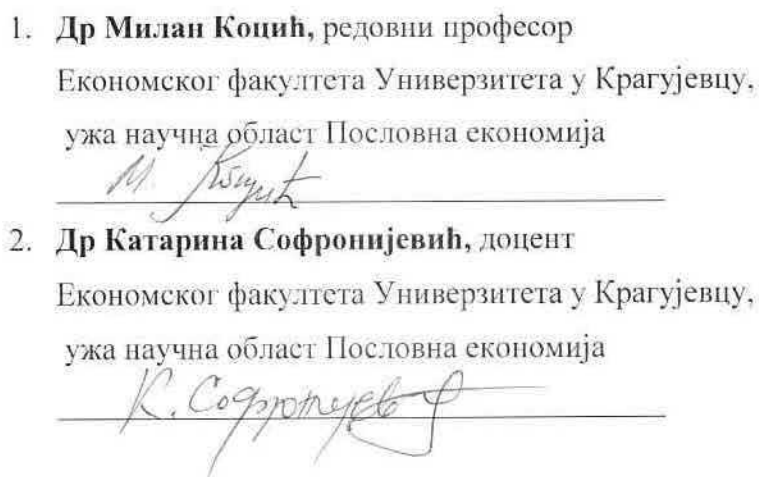 1. Др Милан Коцић, редовни професор
Економског факултета Универзитета у Крагујевцу,
ужа научна област Пословна економија
М. Коцић
2. Др Катарина Софронијевић, доцент
Економског факултета Универзитета у Крагујевцу,
ужа научна област Пословна економија
К. Софронијевић